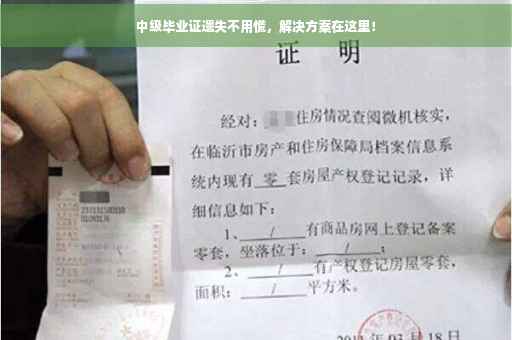 中级毕业证遗失不用慌，解决方案在这里！
证 明
经对：住房情况查阅微机核实，
在临沂市房产和住房保障局档案信息系
统内现有 零 套房屋产权登记记录，详
细信息如下：
1、 / 有商品房网上登记备案
零套，坐落位于： / ；
2、 / 有产权登记房屋零套，
面积： / 平方米。
月 18 日